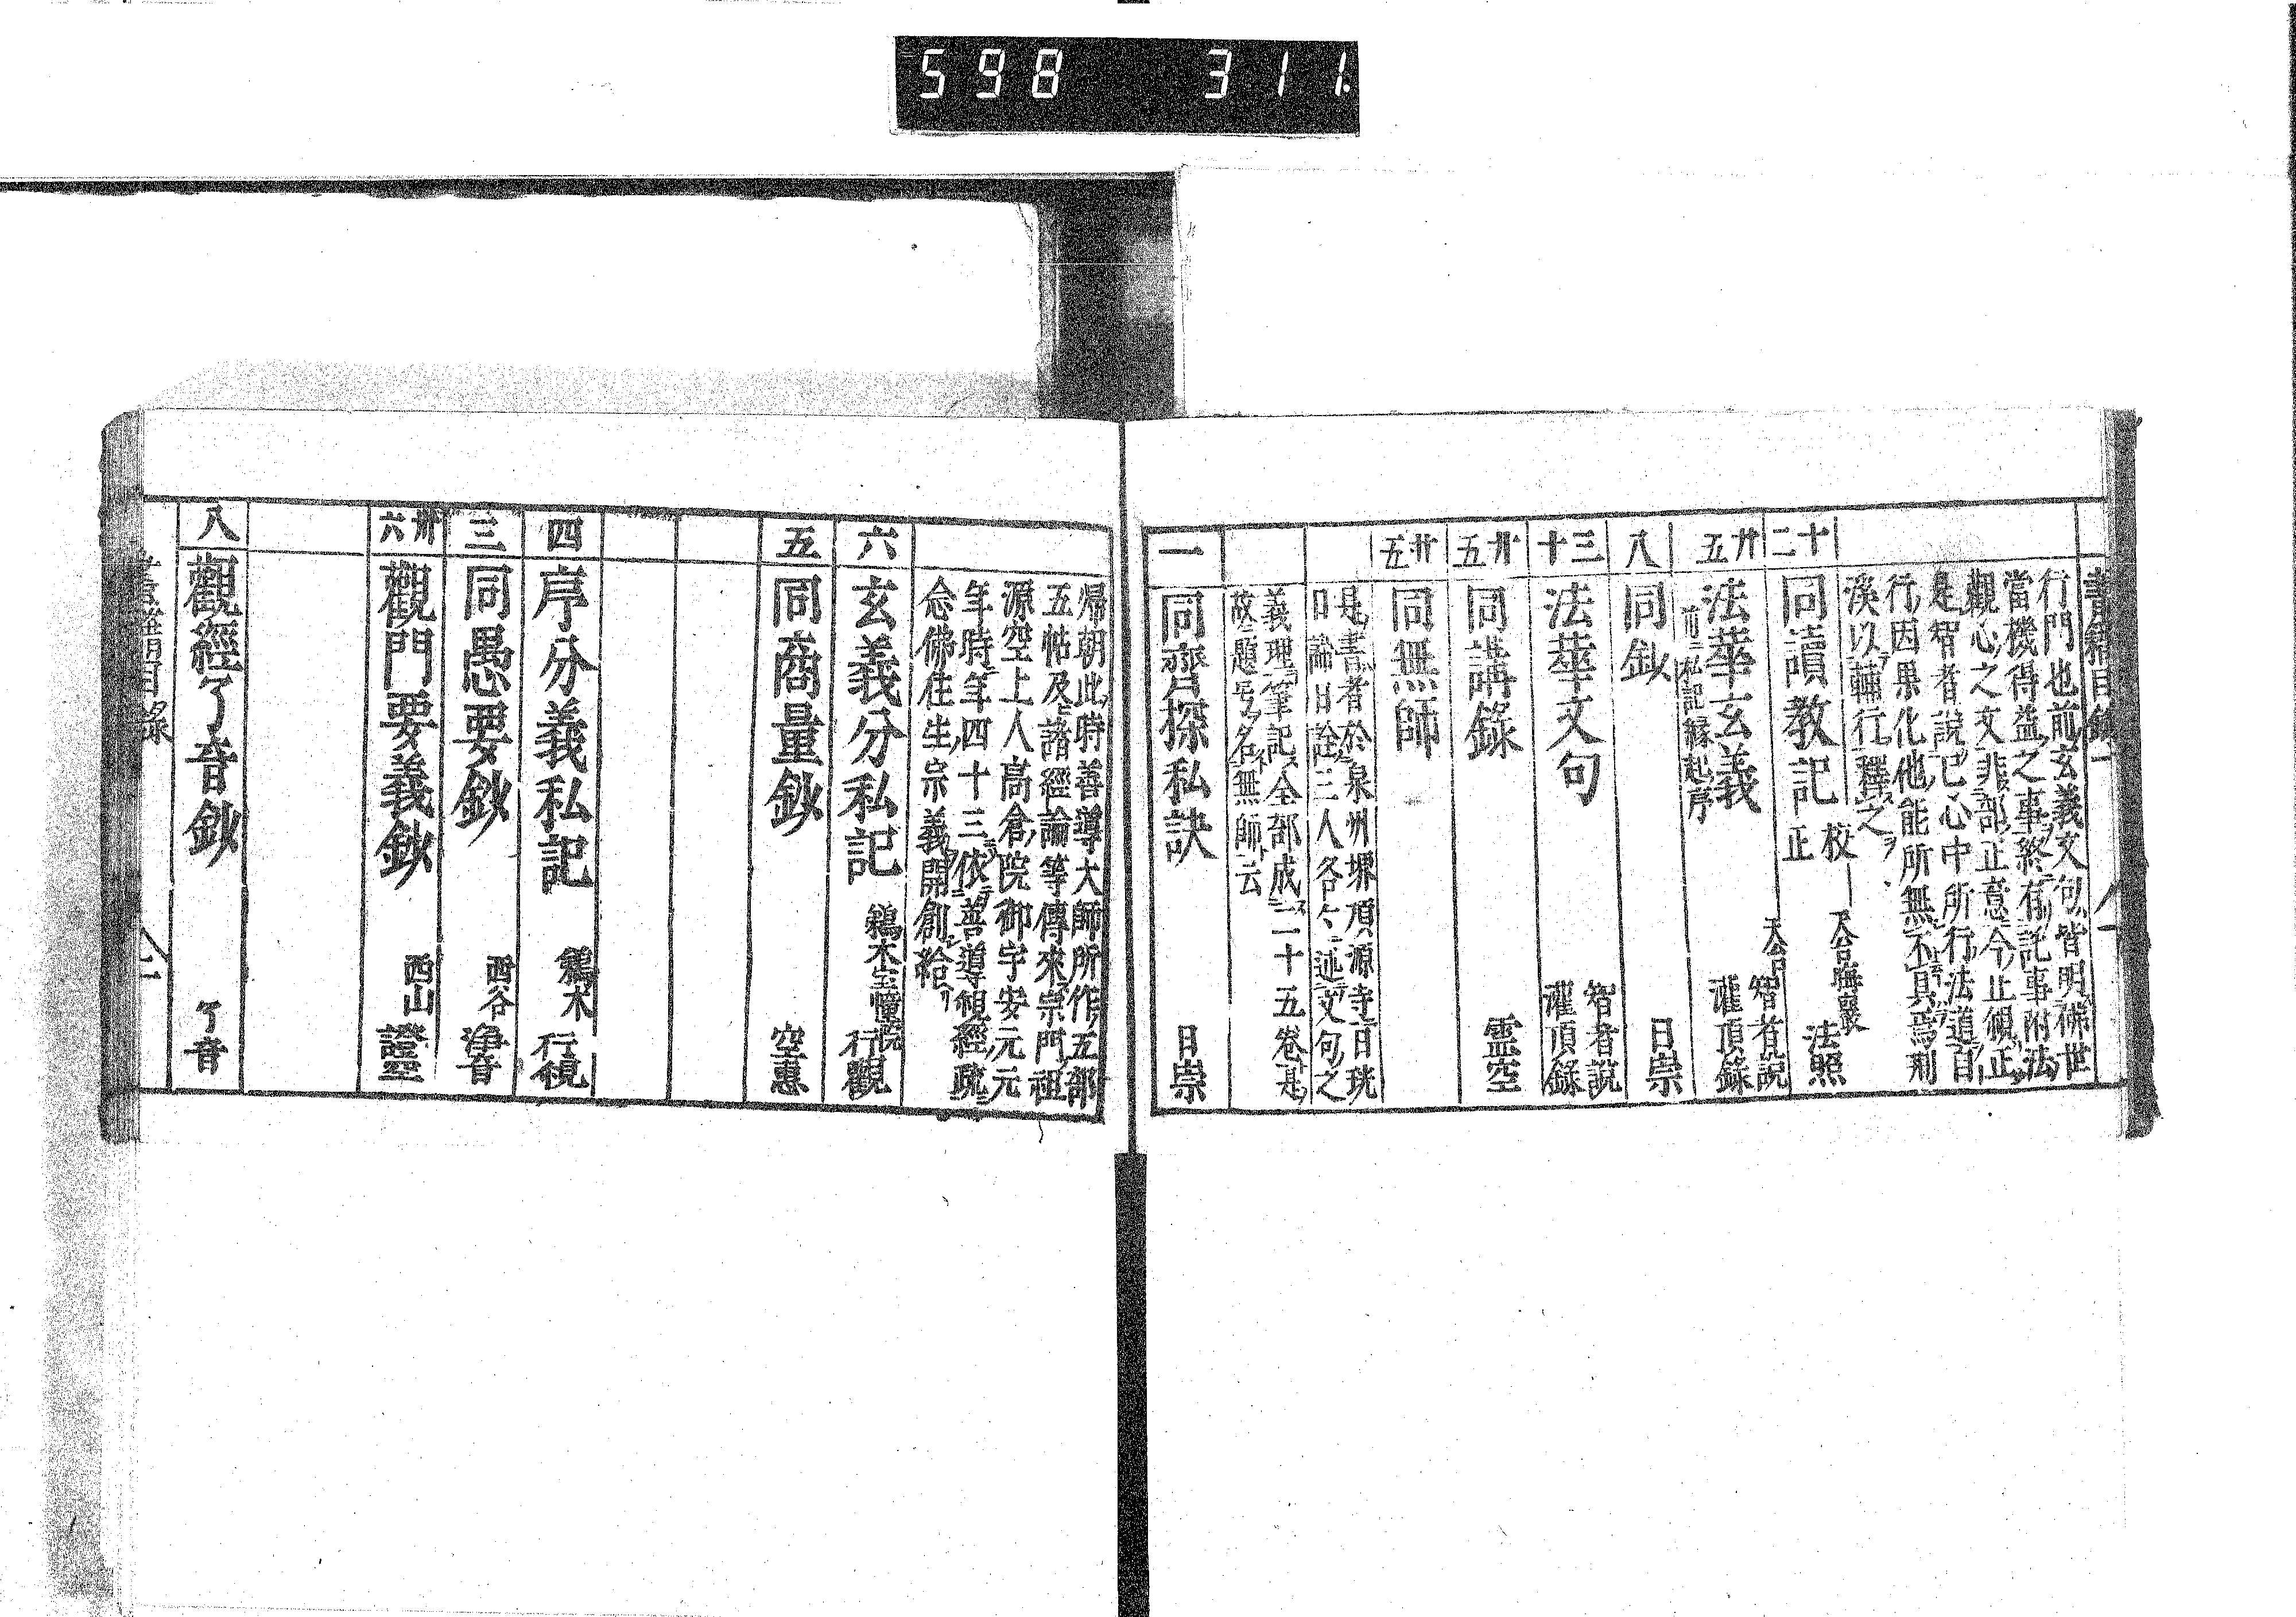 598 311
書籍目録一
行門也前玄義文句皆明佛世
當機得益之事終有託事附法
觀心之文非部正意今止觀正
是智者說己心中所行法道自
行因果化他能所無不具焉荊
溪以輔行釋之
十二 同讀教記 校正 天台晦巖 法照
廿五 法華玄義 天台智者説 灌頂錄
前ニ私記縁起序
八 同鈔 日崇
三十 法華文句 智者説 灌頂錄
卅五 同講錄 霊空
廿五 同無師
是書者於泉州堺頂源寺日珖
日諦日詮三人各々述文句之
義理筆記全部成二十五卷是
故題号名無師云
一 同齊探私訣 日崇
帰朝此時善導大師所作五部
五帖及諸經論等傳來宗門祖
源空上人高倉院御宇安元元
年時年四十三依善導觀經疏
念佛往生宗義開創給
六 玄義分私記 鵜木宝幢院 行觀
五 同商量鈔 空惠
四 序分義私記 鵜木 行観
三 同愚要鈔 西谷 浄音
卅六 觀門要義鈔 西山 證空
八 觀經了音鈔 了音
目錄